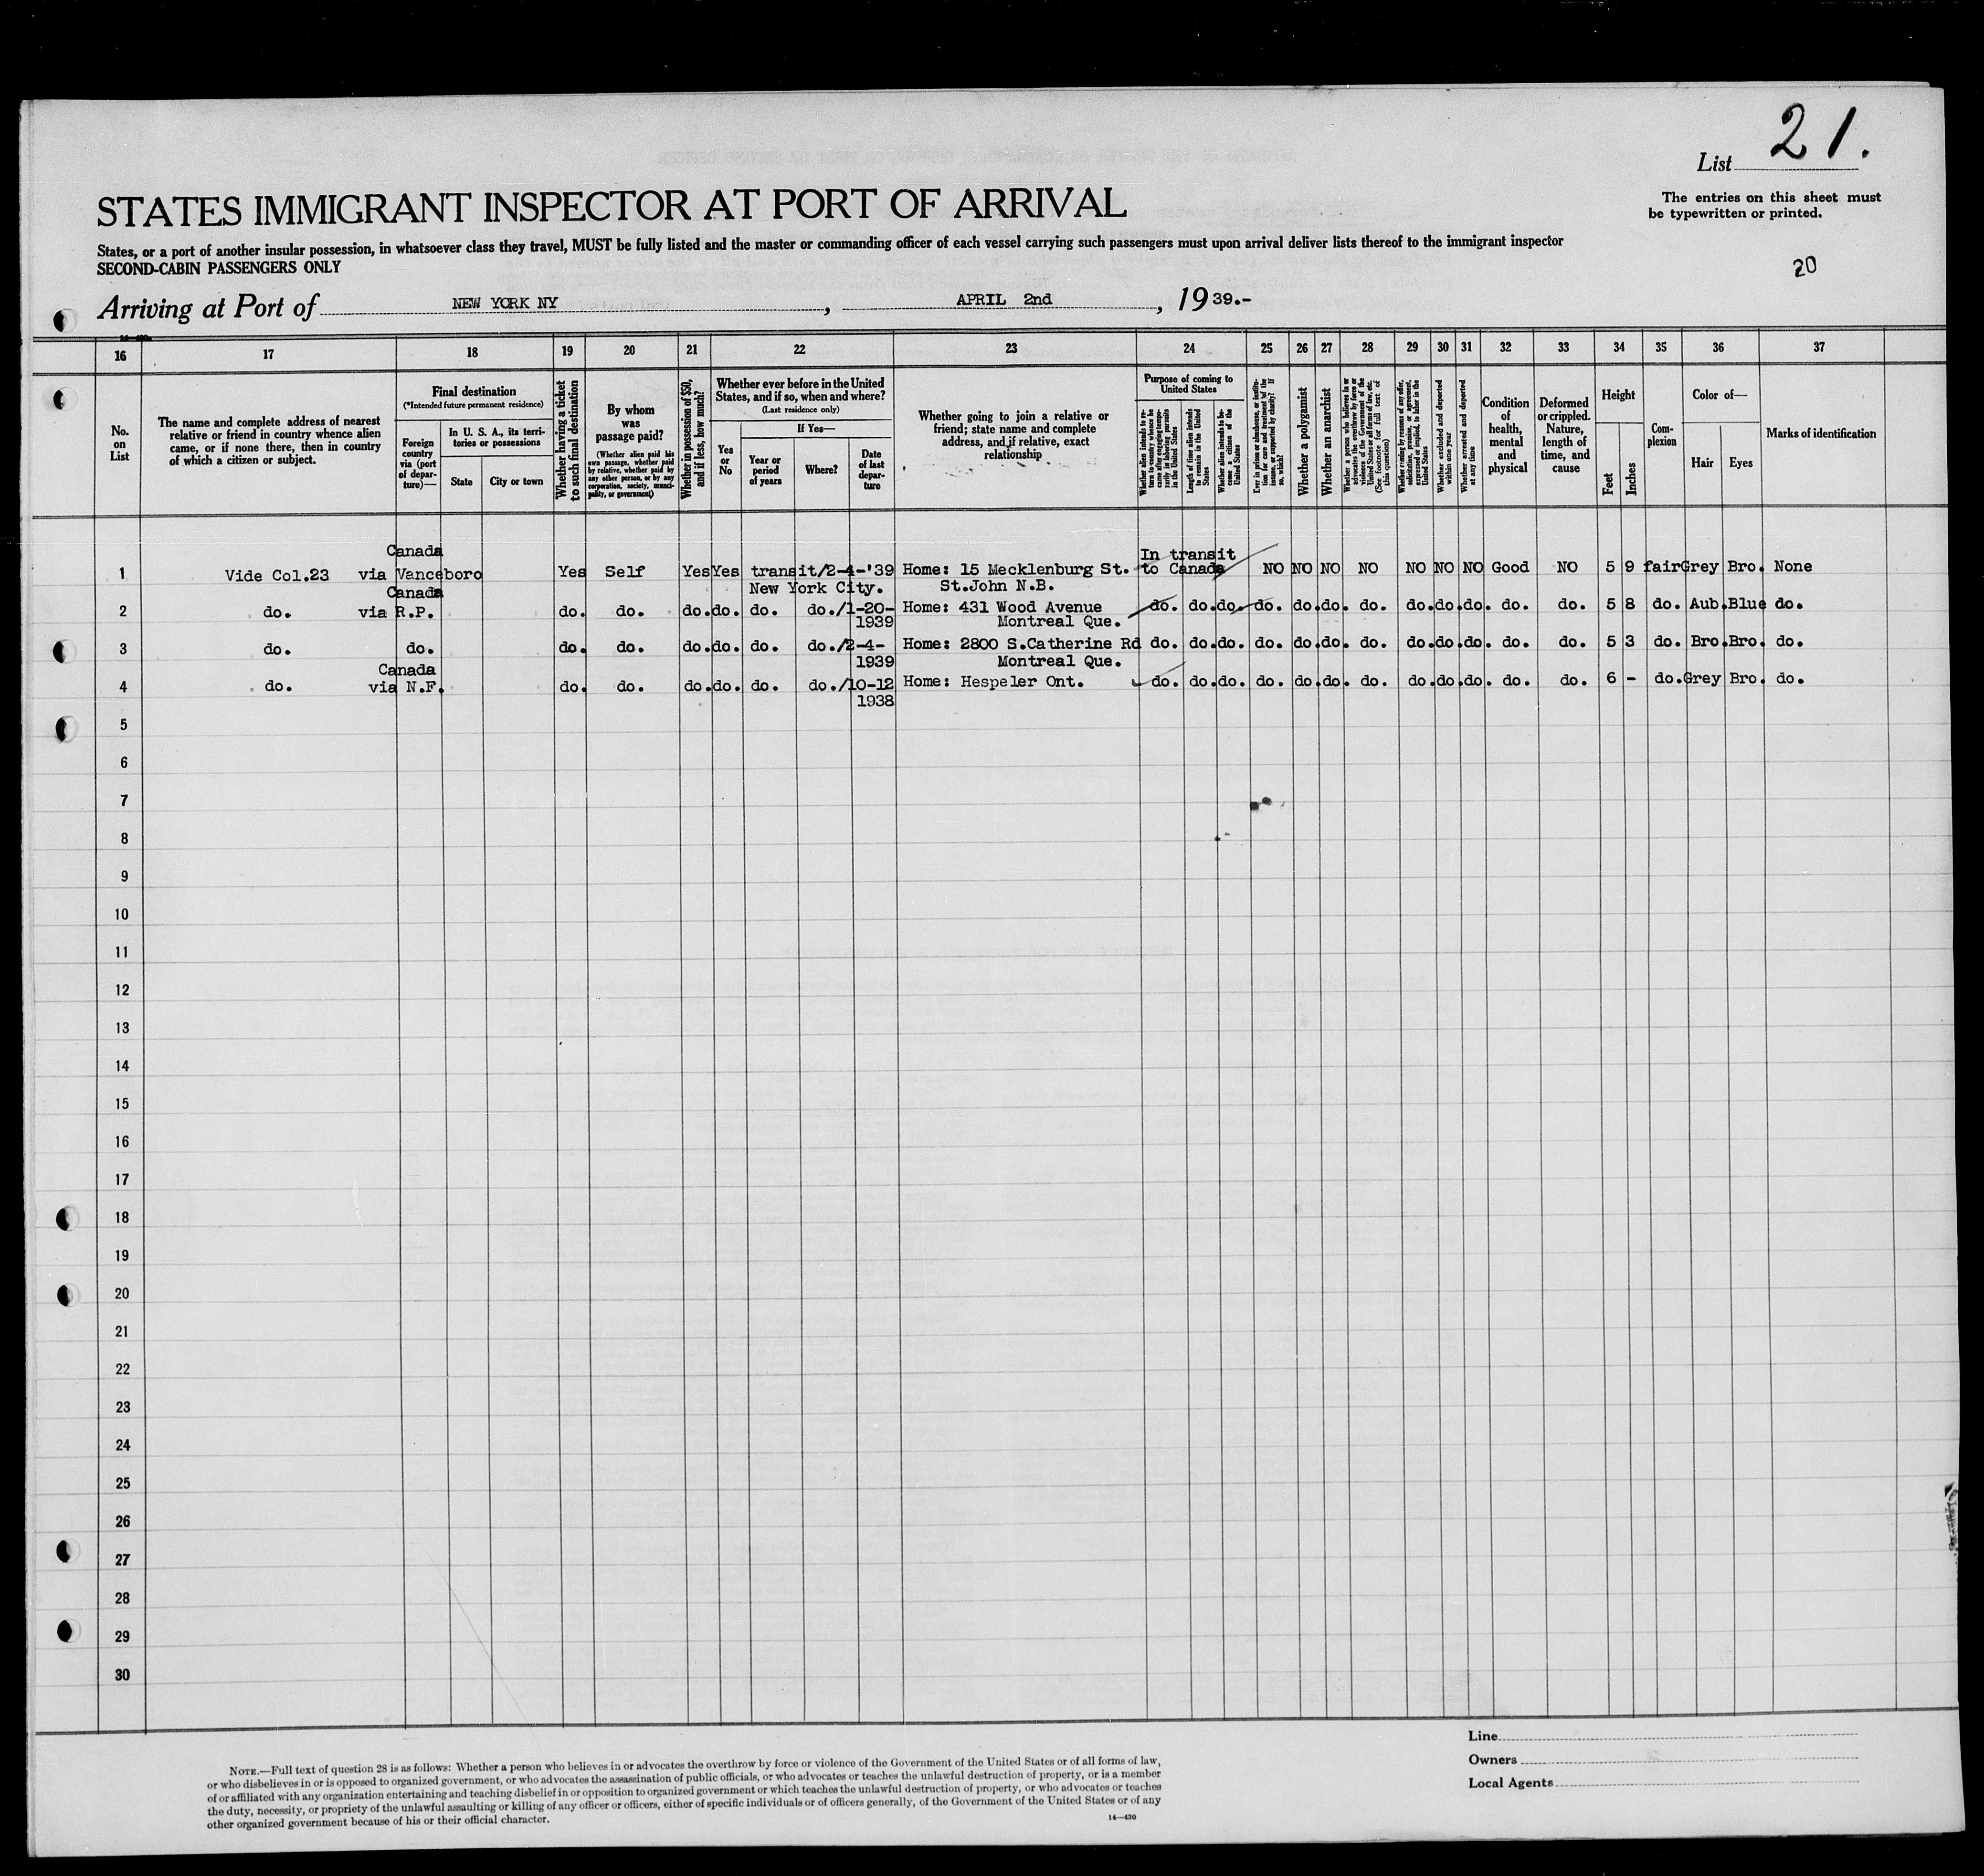 List 21.
The entries on this sheet must
be typewritten or printed.
20
STATES IMMIGRANT INSPECTOR AT PORT OF ARRIVAL
States, or a port of another insular possession, in whatsoever class they travel, MUST be fully listed and the master or commanding officer of each vessel carrying such passengers must upon arrival deliver lists thereof to the immigrant inspector
SECOND-CABIN PASSENGERS ONLY
Arriving at Port of NEW YORK NY, APRIL 2nd, 19 39.-
16 17 18 19 20 21 22 23 24 25 26 27 28 29 30 31 32 33 34 35 36 37
No.
on
List
The name and complete address of nearest
relative or friend in country whence alien
came, or if none there, then in country
of which a citizen or subject.
Final destination
(*Intended future permanent residence)
Foreign
country
via (port
of depar-
ture)—
In U. S. A., its terri-
tories or possessions
State
City or town
Whether having a ticket
to such final destination
By whom
was
passage paid?
(Whether alien paid his
own passage, whether paid
by relative, whether paid by
any other person, or by any
corporation, society, munici-
pality, or government)
Whether in possession of $50,
and if less, how much?
Whether ever before in the United
States, and if so, when and where?
(Last residence only)
Yes
or
No
If Yes—
Year or
period
of years
Where?
Date
of last
depar-
ture
Whether going to join a relative or
friend; state name and complete
address, and if relative, exact
relationship
Purpose of coming to
United States
Whether alien intends to re-
turn to country whence he
came after engaging tempo-
rarily in laboring pursuits
in the United States
Length of time alien intends
to remain in the United
States
Whether alien intends to be-
come a citizen of the
United States
Ever in prison or almshouse, or institu-
tion for care and treatment of the
insane, or supported by charity? If
so, which?
Whether a polygamist
Whether an anarchist
Whether a person who believes in or
advocates the overthrow by force or
violence of the Government of the
United States or all forms of law, etc.
(See footnote for full text of
this question)
Whether coming by reason of any offer,
solicitation, promise, or agreement,
expressed or implied, to labor in the
United States
Whether excluded and deported
within one year
Whether arrested and deported
at any time
Condition
of
health,
mental
and
physical
Deformed
or crippled.
Nature,
length of
time, and
cause
Height
Feet
Inches
Com-
plexion
Color of—
Hair
Eyes
Marks of identification
Canada In transit
1 Vide Col.23 via Vanceboro Yes Self Yes Yes transit/2-4-'39 Home: 15 Mecklenburg St. to Canada NO NO NO NO NO NO NO Good NO 5 9 fair Grey Bro. None
Canada New York City. St.John N.B.
2 do. via R.P. do. do. do. do. do. do./1-20- Home: 431 Wood Avenue do. do. do. do. do. do. do. do. do. do. do. do. 5 8 do. Aub. Blue do.
1939 Montreal Que.
3 do. do. do. do. do. do. do. do./2-4- Home: 2800 S.Catherine Rd do. do. do. do. do. do. do. do. do. do. do. do. 5 3 do. Bro. Bro. do.
Canada 1939 Montreal Que.
4 do. via N.F. do. do. do. do. do. do./10-12 Home: Hespeler Ont. do. do. do. do. do. do. do. do. do. do. do. do. 6 - do. Grey Bro. do.
1938
5
6
7
8
9
10
11
12
13
14
15
16
17
18
19
20
21
22
23
24
25
26
27
28
29
30
Line
Owners
Local Agents
NOTE.—Full text of question 28 is as follows: Whether a person who believes in or advocates the overthrow by force or violence of the Government of the United States or of all forms of law,
or who disbelieves in or is opposed to organized government, or who advocates the assassination of public officials, or who advocates or teaches the unlawful destruction of property, or is a member
of or affiliated with any organization entertaining and teaching disbelief in or opposition to organized government or which teaches the unlawful destruction of property, or who advocates or teaches
the duty, necessity, or propriety of the unlawful assaulting or killing of any officer or officers, either of specific individuals or of officers generally, of the Government of the United States or of any
other organized government because of his or their official character.
14—430